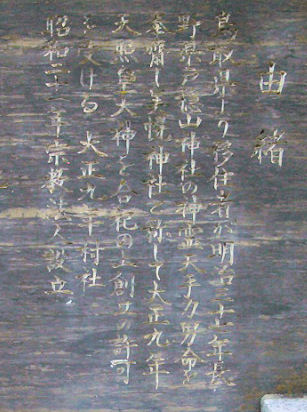 由緒
鳥取県より移住者が明治三十一年長
野県戸隠山神社の神霊天手力男命を
奉齋し手力神社と称して大正九年
天照皇大神を合祀因上創立の許可
を受ける 大正九年村社
昭和二十一年宗教法人設立